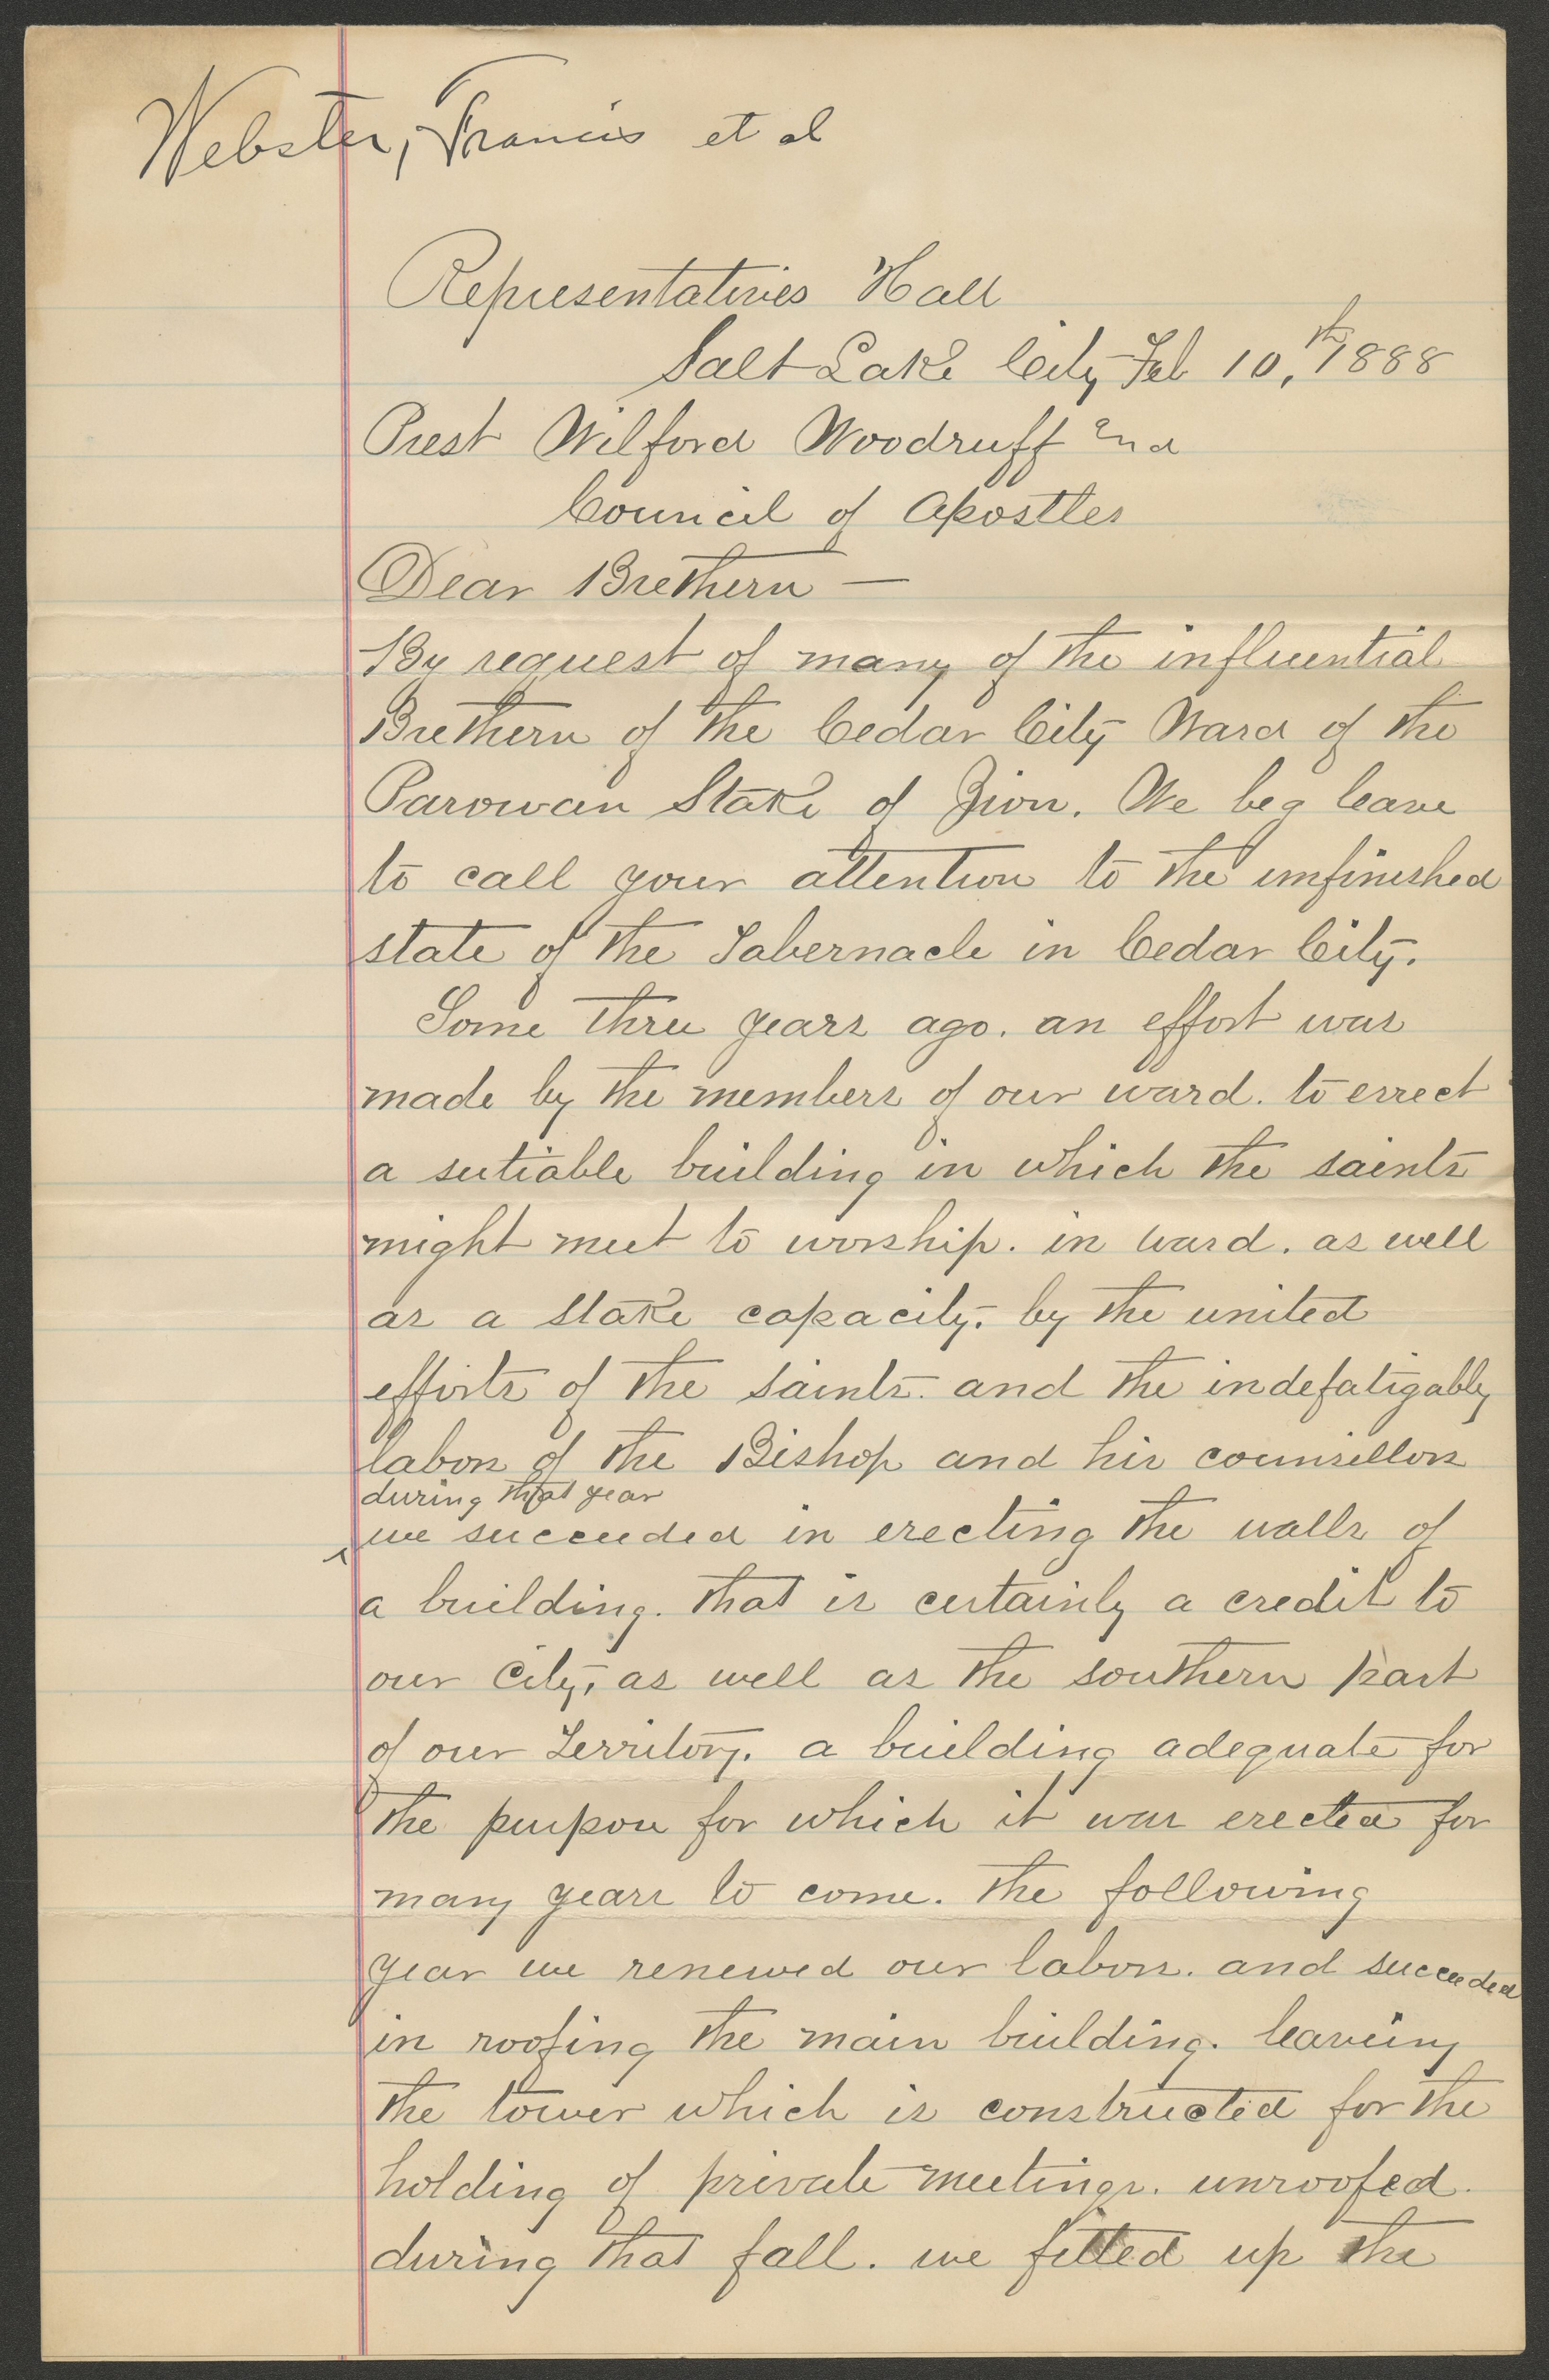 Webster, Francis et al
Representatives Hall
Salt Lake City Feb 10,th 1888
Prest Wilford Woodruff and
Council of Apostles
Dear Brethern —
By request of many of the influential
Brethern of the Cedar City Ward of the
Parowan Stake of Zion. We beg leave
to call your attention to the unfinished
state of the Tabernacle in Cedar City.
Some three years ago. an effort was
made by the members of our ward. to errect
a sutiable building in which the saints
might meet to worship. in ward. as well
as a Stake capacity. by the united
efforts of the saints. and the indefatigably
labors of the Bishop and his counsellors
during that year
^ we succeeded in erecting the walls of
a building. that is certainly a credit to
our City, as well as the southern part
of our Territory. a building adequate for
the purpose for which it was erected for
many years to come. the following
year we renewed our labors. and succeeded
in roofing the main building. leaveing
the tower which is constructed for the
holding of private meetings. unroofed.
during that fall. we fitted up the